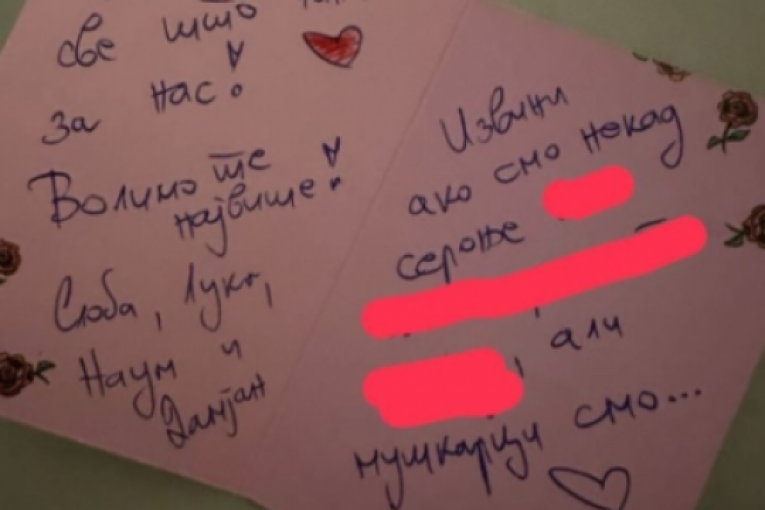 све што
за нас!
Волимо те
највише!
Слоба, Лука,
Наум и
Дамјан
Извини
ако смо некад
серопье
, али
, мушкарци смо...